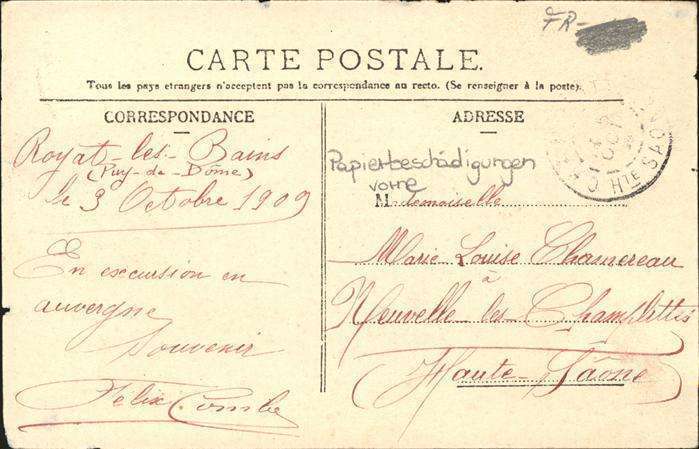 FR-
CARTE POSTALE.
Tous les pays etrangers n'acceptent pas la correspondance au recto. (Se renseigner à la poste).
CORRESPONDANCE
Royat-les-Bains
(Puy-de-Dôme)
le 3 Octobre 1909
En excursion en
auvergne
Souvenir
Felix Combe
ADRESSE
Papierbeschädigungen
vorne
Mademoiselle
Marie Louise Chamereau
à
Neuvelle-les-Champlittes
Haute-Saône
HTE SAONE